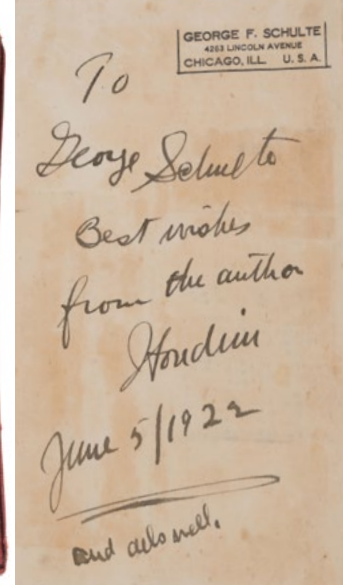 GEORGE F. SCHULTE
4263 LINCOLN AVENUE
CHICAGO, ILL. U. S. A.
To
George Schulte
Best wishes
from the author
Houdini
June 5/1922
and